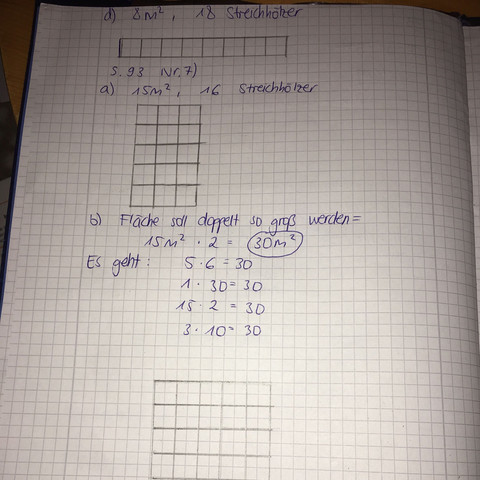 d) 8m², 18 Streichhölzer
S. 93 Nr. 7)
a) 15m², 16 Streichhölzer
b) Fläche soll doppelt so groß werden =
15m² · 2 = 30m²
Es geht: 5 · 6 = 30
1 · 30 = 30
15 · 2 = 30
3 · 10 = 30